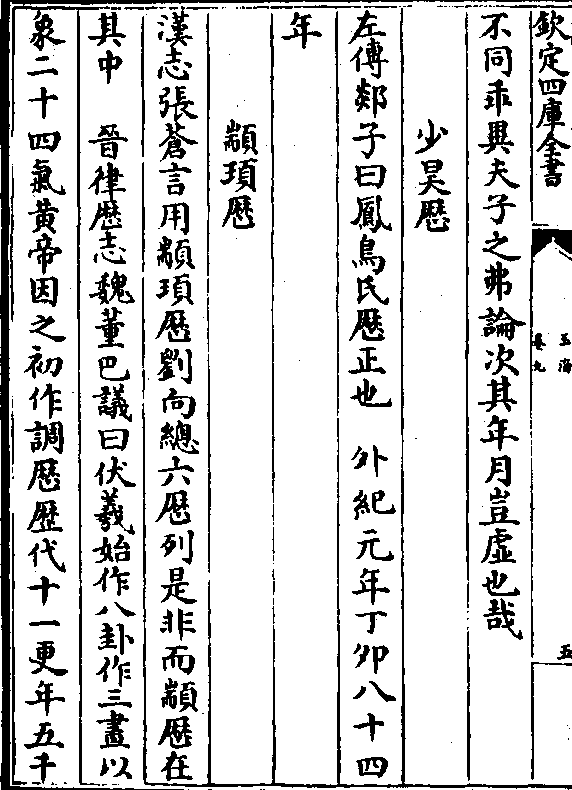 欽定四庫全書
玉海
卷九
五
不同乖異夫子之弗論次其年月豈虛也哉
少昊厯
左傳郯子曰鳳鳥氏厯正也 外紀元年丁卯八十四
年
顓頊厯
漢志張蒼言用顓頊厯劉向總六厯列是非而顓厯在
其中 晉律厯志魏董巴議曰伏羲始作八卦作三畫以
象二十四氣黄帝因之初作調厯歴代十一更年五千